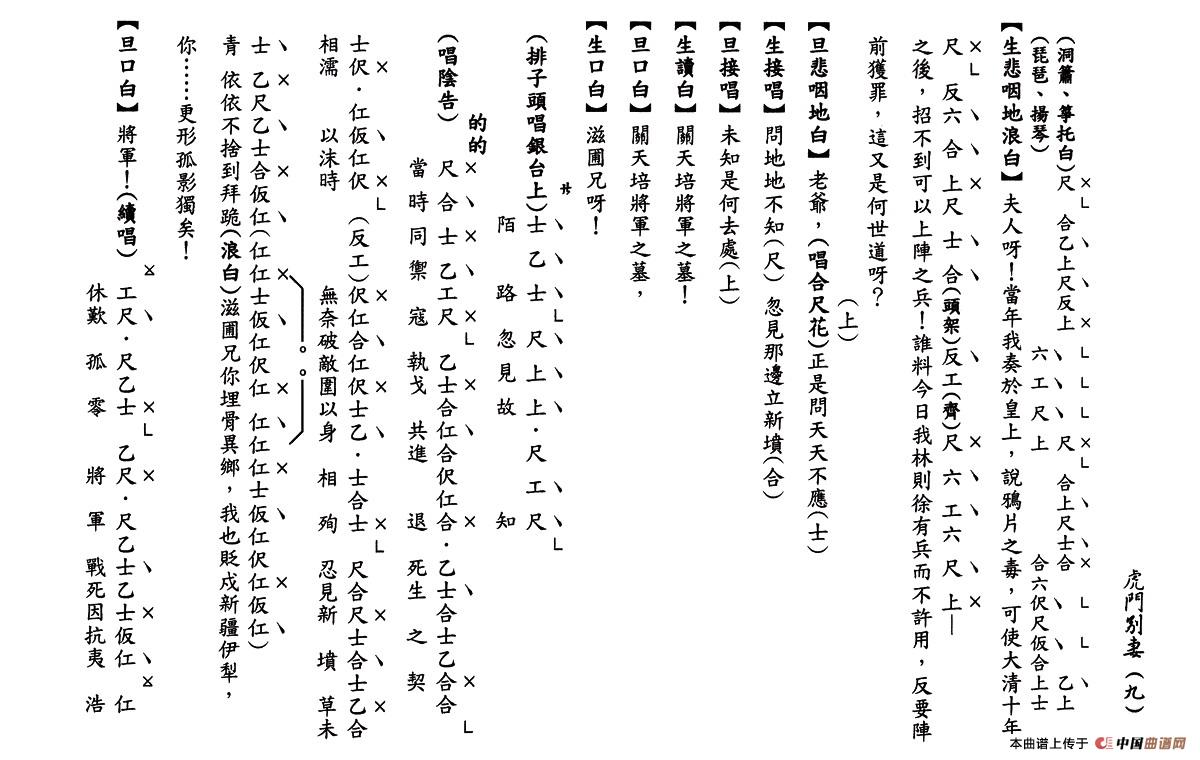 虎門別妻（九）
（洞簫、箏托白）尺 合乙上尺反上 尺 合上尺士合 乙上
（琵琶、揚琴） 六工尺上 合六伬尺仮合上士
【生悲咽地浪白】夫人呀！當年我奏於皇上，說鴉片之毒，可使大清十年
尺 反六合上尺士合（頭架）反工（齊）尺六工六尺上—
之後，招不到可以上陣之兵！誰料今日我林則徐有兵而不許用，反要陣
前獲罪，這又是何世道呀？
（上）
【旦悲咽地白】老爺，（唱合尺花）正是問天天不應（士）
【生接唱】問地地不知（尺）忽見那邊立新墳（合）
【旦接唱】未知是何去處（上）
【生讀白】關天培將軍之墓！
【旦口白】關天培將軍之墓，
【生口白】滋圃兄呀！
（排子頭唱銀台上）士乙士尺上上·尺工尺
陌路忽見故知
的的
（唱陰告） 尺合士乙工尺乙士合仜合伬仜合·乙士合士乙合合
當時同禦寇執戈共進退死生之契
士伬·仜仮仜伬（反工）伬仜合仜伬士乙·士合士尺合尺士合士乙合
相濡以沫時 無奈破敵圍以身相殉忍見新墳草未
士乙尺乙士合仮仜（仜仜士仮仜伬仜 仜仜仜士仮仜伬仜仮仜）
青 依依不捨到拜跪（浪白）滋圃兄你埋骨異鄉，我也貶戍新疆伊犁，
你……更形孤影獨矣！
【旦口白】將軍！（續唱）工尺·尺乙士乙尺·尺乙士乙士仮仜仜
休歎孤零將軍戰死因抗夷浩
本曲譜上传于 中国曲谱网